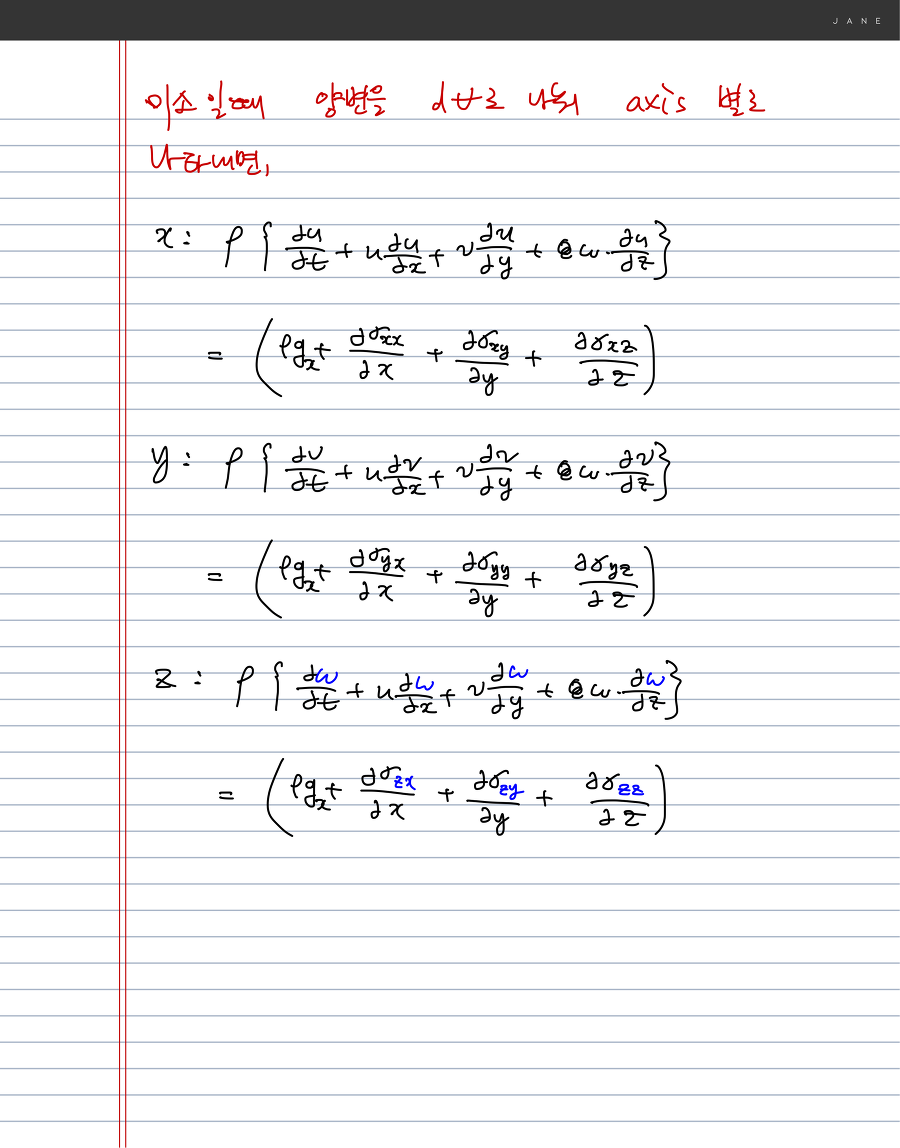 JANE
미소 일때 양변을 d∀로 나눠 axis 별로
나타내면,
x: ρ { ∂u/∂t + u ∂u/∂x + v ∂u/∂y + w · ∂u/∂z }
= ( ρg_x + ∂σ_xx/∂x + ∂σ_xy/∂y + ∂σ_xz/∂z )
y: ρ { ∂v/∂t + u ∂v/∂x + v ∂v/∂y + w · ∂v/∂z }
= ( ρg_x + ∂σ_yx/∂x + ∂σ_yy/∂y + ∂σ_yz/∂z )
z: ρ { ∂w/∂t + u ∂w/∂x + v ∂w/∂y + w · ∂w/∂z }
= ( ρg_x + ∂σ_zx/∂x + ∂σ_zy/∂y + ∂σ_zz/∂z )